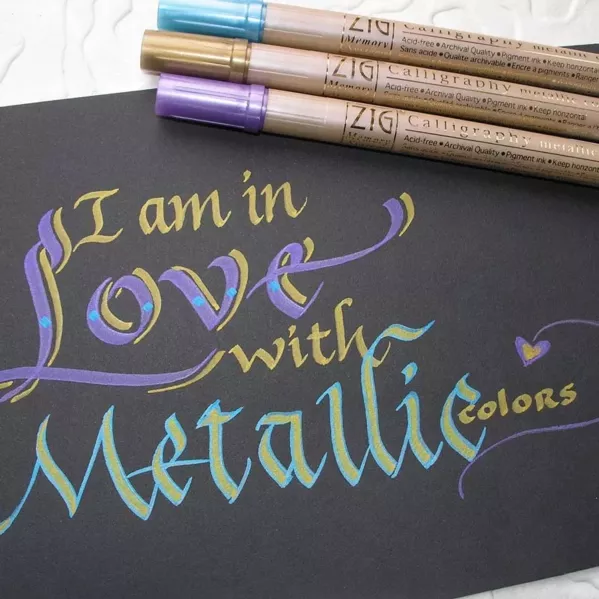 ZIG Memory Calligraphy metallic
Acid-free • Archival Quality • Pigment ink • Keep horizontal
Sans acide • Qualite archivable • Encre a pigments • Ranger
ZIG Memory Calligraphy metallic
Acid-free • Archival Quality • Pigment ink • Keep horizontal
ZIG Memory Calligraphy metallic
Acid-free • Archival Quality • Pigment ink • Keep horizont
I am in
Love
with
Metallic
colors